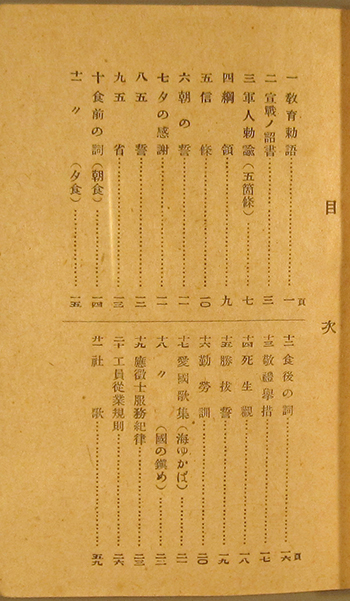 目次
一 教育勅語……………一頁
二 宣戰ノ詔書……………三
三 軍人勅諭(五箇條)……………七
四 綱領……………九
五 信條……………一〇
六 朝の誓……………一一
七 夕の感謝……………一一
八 五誓……………一二
九 五省……………一三
十 食前の詞(朝食)……………一四
十一 〃(夕食)……………一五
十二 食後の詞……………一六頁
十三 敬禮擧措……………一七
十四 死生觀……………一八
十五 勝拔誓……………一九
十六 勤勞訓……………二〇
十七 愛國歌集(海ゆかば)……………二一
十八 〃(國の鎭め)……………二二
十九 應徴士服務紀律……………二三
二十 工員從業規則……………二六
廿一 社歌……………五九